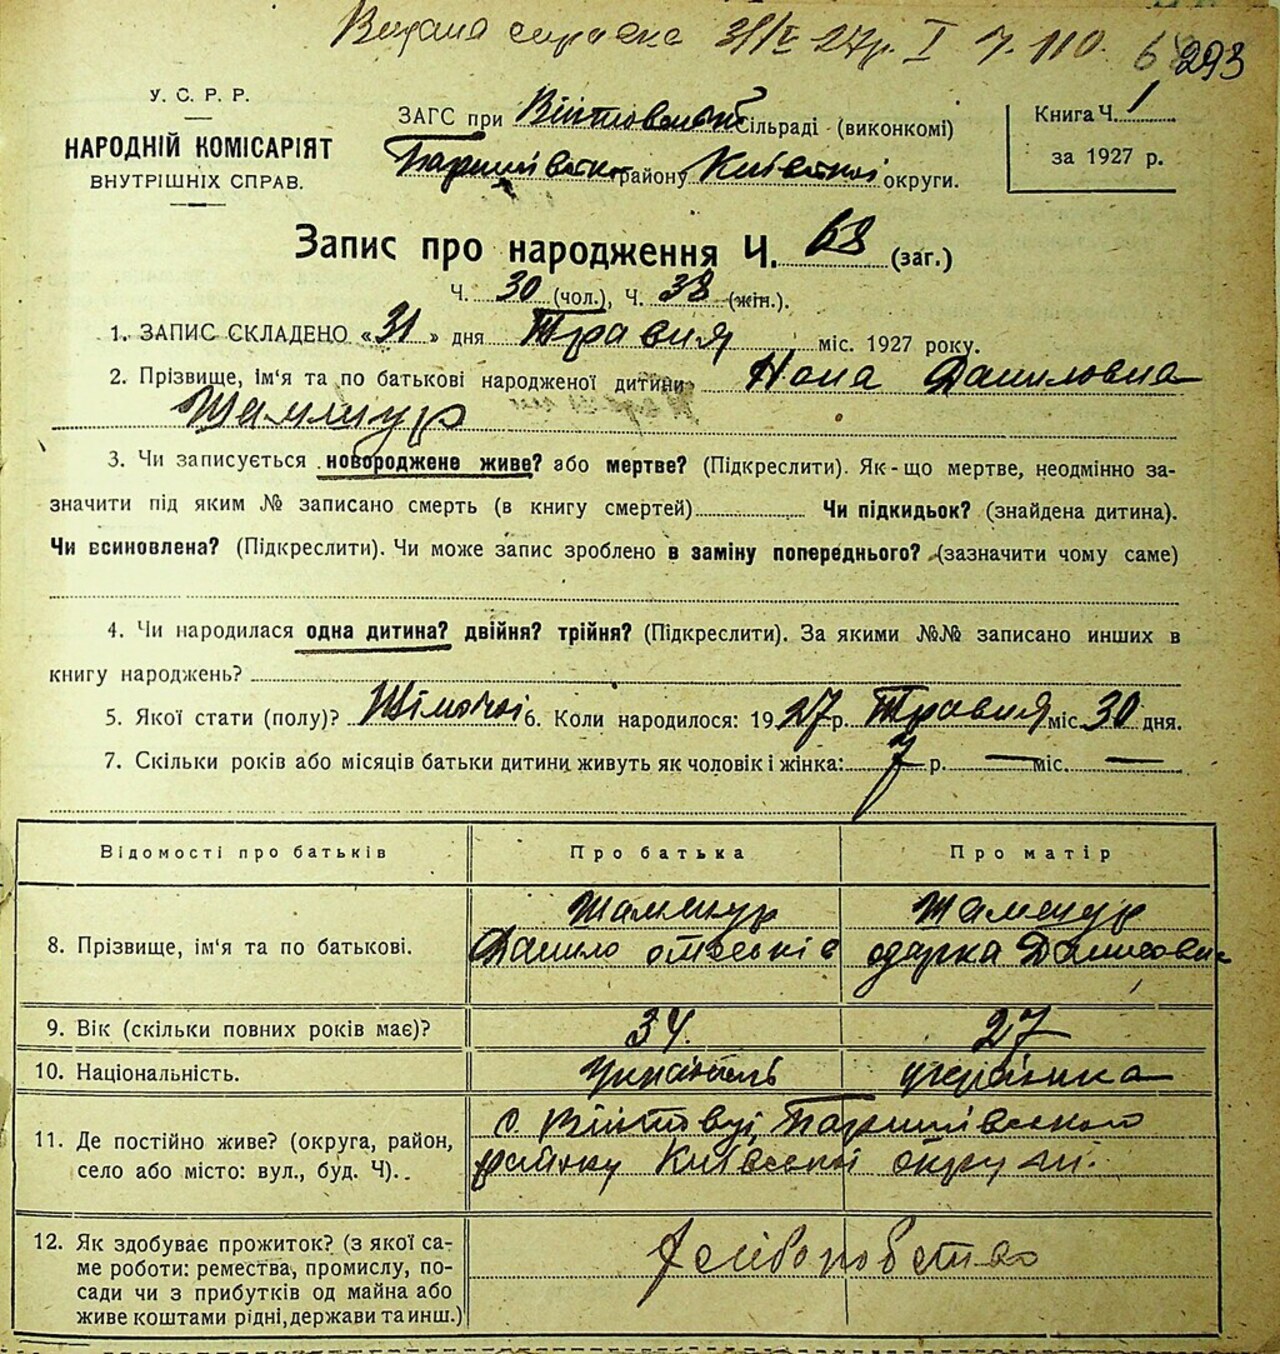 Видана справка 31/V 27р. I ч. 110. 68 293
У. С. Р. Р.
НАРОДНІЙ КОМІСАРІЯТ
ВНУТРІШНІХ СПРАВ.
ЗАГС при Війтовській Сільраді (виконкомі)
Баришівського району Київської округи.
Книга Ч. 1
за 1927 р.
Запис про народження Ч. 68 (заг.)
Ч. 30 (чол.), Ч. 38 (жін.).
1. ЗАПИС СКЛАДЕНО «31» дня Травня міс. 1927 року.
2. Прізвище, ім'я та по батькові народженої дитини Нона Даниловна
Шамшур
3. Чи записується новороджене живе? або мертве? (Підкреслити). Як-що мертве, неодмінно за-
значити під яким № записано смерть (в книгу смертей) Чи підкидьок? (знайдена дитина).
Чи всиновлена? (Підкреслити). Чи може запис зроблено в заміну попереднього? (зазначити чому саме)
4. Чи народилася одна дитина? двійня? трійня? (Підкреслити). За якими №№ записано инших в
книгу народжень?
5. Якої стати (полу)? Жіночої 6. Коли народилося: 1927 р. Травня міс. 30 дня.
7. Скільки років або місяців батьки дитини живуть як чоловік і жінка: 7 р. — міс. —
Відомості про батьків Про батька Про матір
Шамшур Шамшур
8. Прізвище, ім'я та по батькові. Данило Одарка
9. Вік (скільки повних років має)? 34. 27
10. Національність. Українець українка
с. Війтовці, Баришівського
11. Де постійно живе? (округа, район,
село або місто: вул., буд. Ч). району Київської округи.
12. Як здобуває прожиток? (з якої са-
ме роботи: ремества, промислу, по-
сади чи з прибутків од майна або
живе коштами рідні, держави та инш.)
Хліборобство